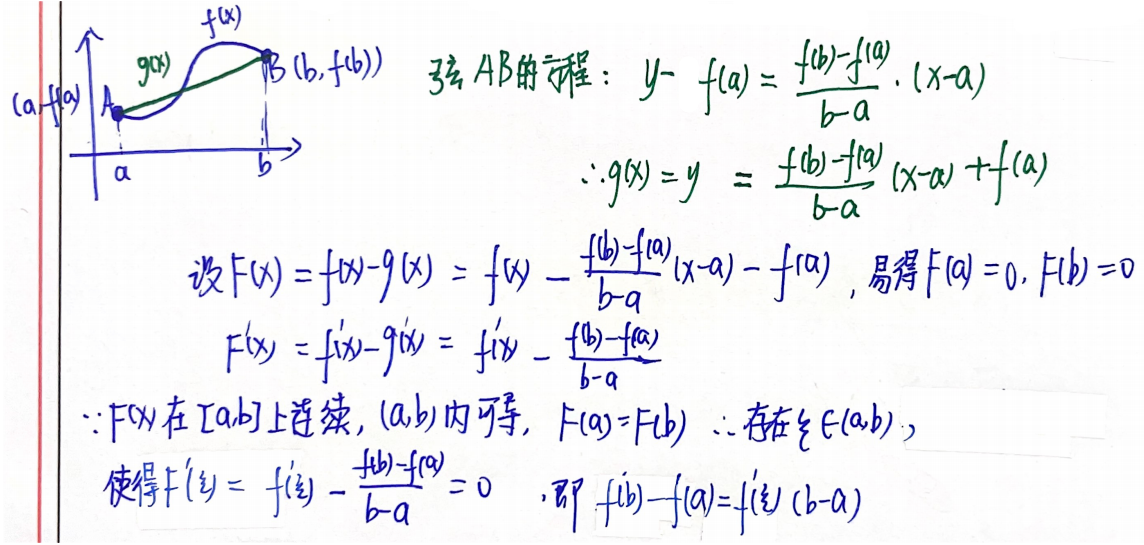 f(x)
g(x)
B(b, f(b))
(a, f(a)) A
a b
弦AB的方程: y - f(a) = \frac{f(b)-f(a)}{b-a} · (x-a)
∴ g(x) = y = \frac{f(b)-f(a)}{b-a} (x-a) + f(a)
设F(x) = f(x)-g(x) = f(x) - \frac{f(b)-f(a)}{b-a}(x-a) - f(a), 易得F(a)=0, F(b)=0
F'(x) = f'(x)-g'(x) = f'(x) - \frac{f(b)-f(a)}{b-a}
∵ F(x)在[a,b]上连续, (a,b)内可导, F(a)=F(b) ∴存在ξ∈(a,b),
使得F'(ξ) = f'(ξ) - \frac{f(b)-f(a)}{b-a} = 0 , 即 f(b)-f(a)=f'(ξ)(b-a)